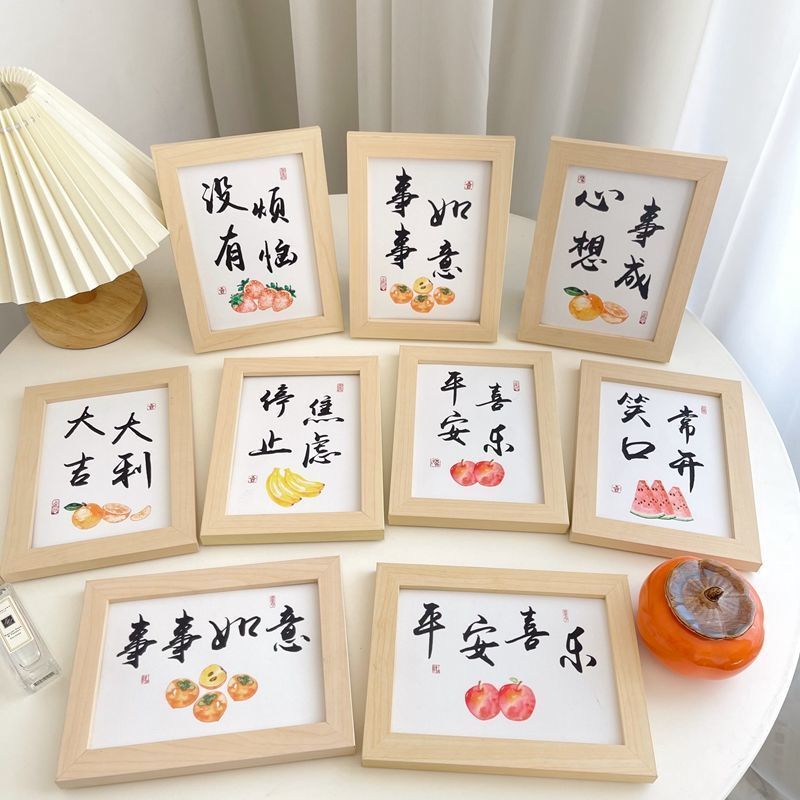 没有
烦恼
事事
如意
心想
事成
大吉
大利
停止
焦虑
平安
喜乐
笑口
常开
事事如意
平安喜乐